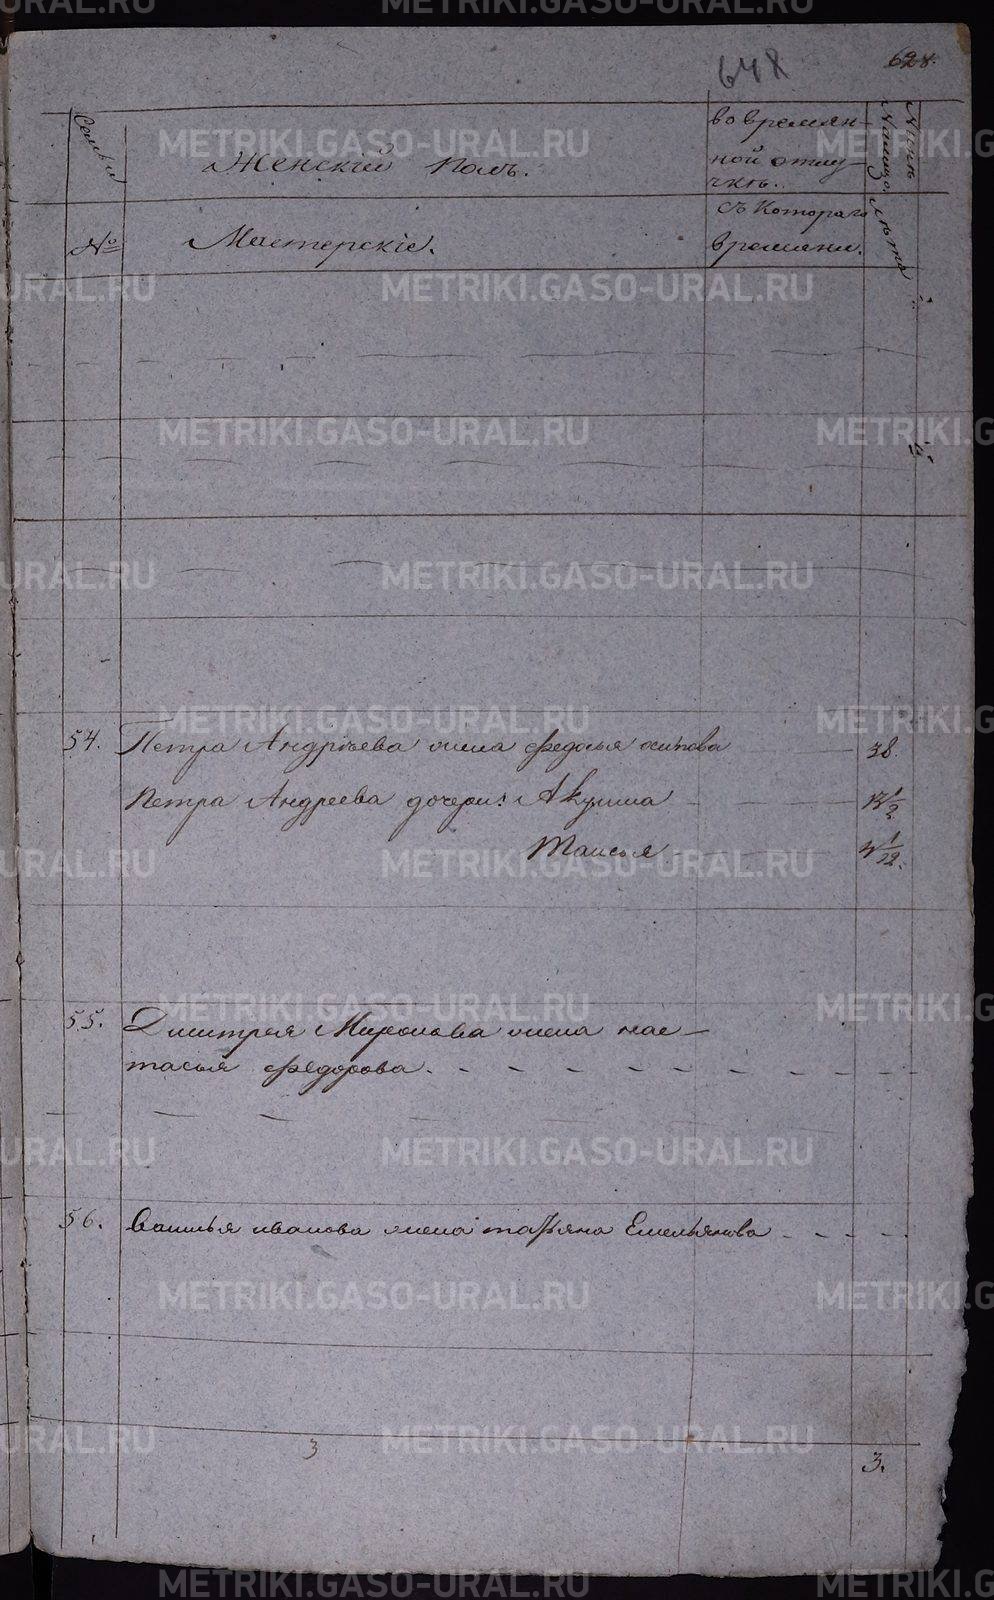 648
628.
Семьи
Женскій полъ.
во времян-
ной отлу-
чкѣ.
Нынѣ
на лицо.
№
Мастерскіе.
съ котораго
времяни.
лѣта
54. Петра Андрѣева жена федосья осипова 38.
Петра Андреева дочери: Акулина
Таисья
55. Дмитрея Миронова жена нас-
тасья федорова.
56. Василья иванова жена татьяна Емельянова
3 3.
METRIKI.GASO-URAL.RU